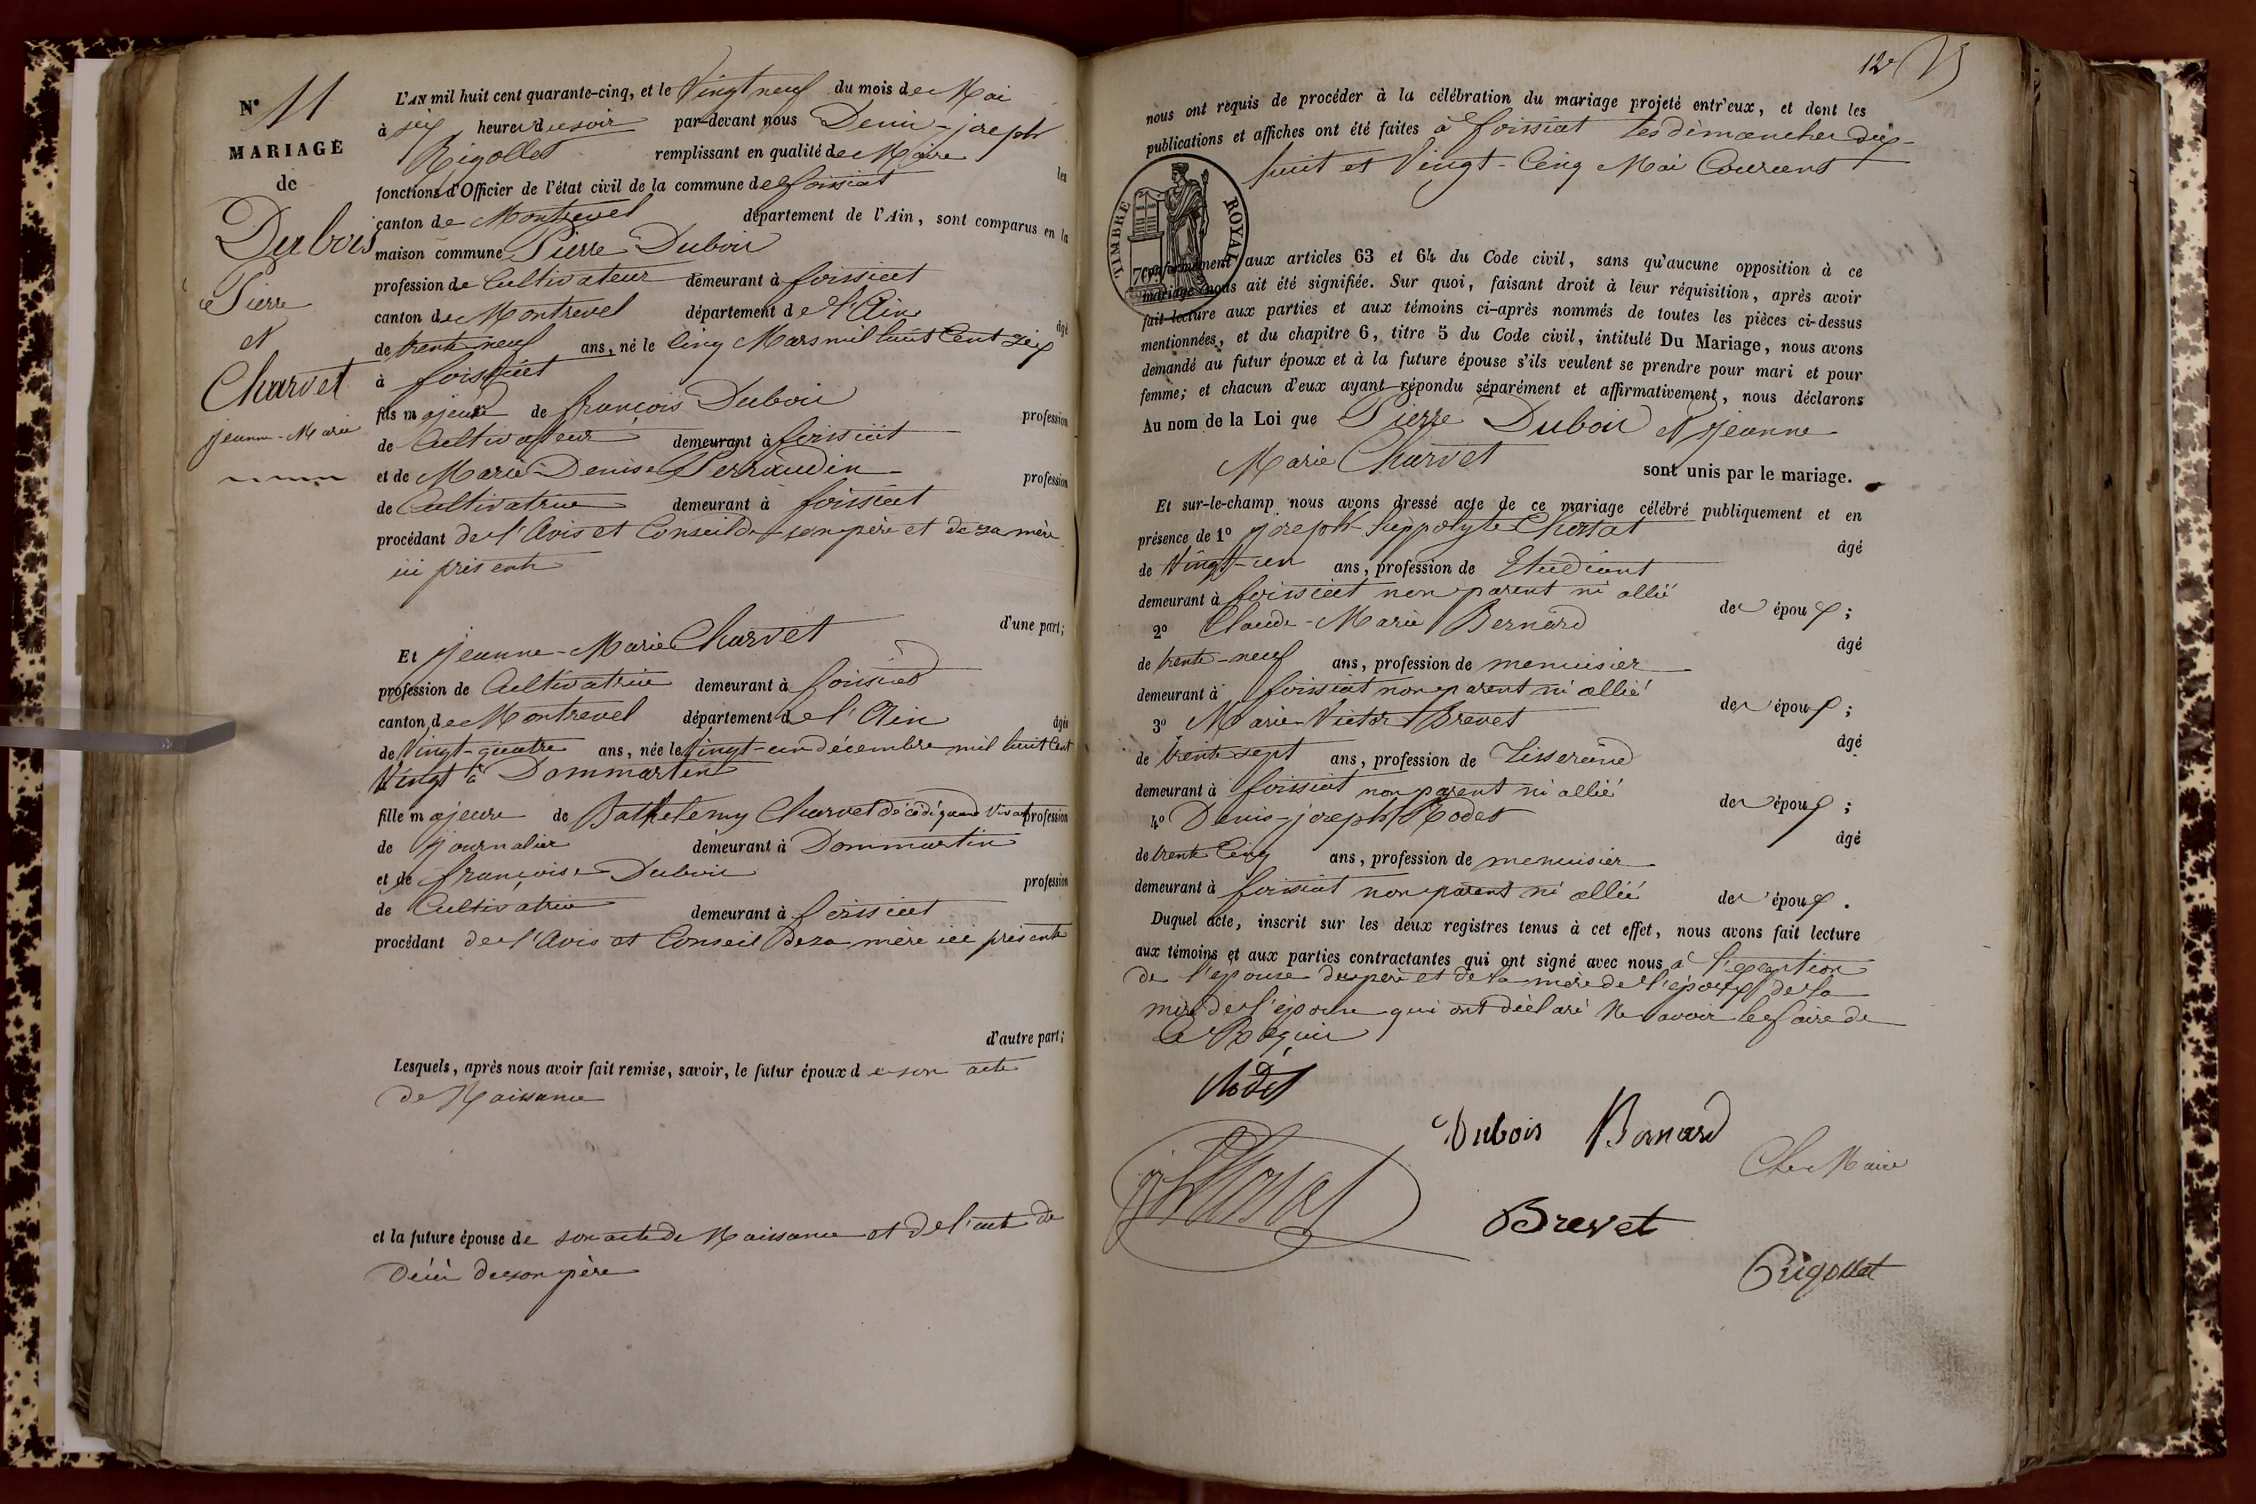 N° 11
MARIAGE
de
Dubois
Pierre
et
Charvet
jeanne-Marie
L'AN mil huit cent quarante-cinq, et le Vingt neuf du mois de Mai
à six heures du soir par-devant nous Denis-joseph
Rigollet remplissant en qualité de Maire les
fonctions d'Officier de l'état civil de la commune de foissiat
canton de Montrevel département de l'Ain, sont comparus en la
maison commune Pierre Dubois
profession de Cultivateur demeurant à foissiat
canton de Montrevel département de l'Ain âgé
de trente neuf ans, né le Cinq Mars mil huit Cent six
à foissiat
fils majeur de françois Dubois profession
de Cultivateur demeurant à foissiat
et de Marie-Denise Perraudin profession
de Cultivatrice demeurant à foissiat
procédant de l'Avis et Conseil de son père et de sa mère
ici présents
d'une part;
Et jeanne-Marie Charvet
profession de Cultivatrice demeurant à foissiat
canton de Montrevel département de l'Ain âgée
de Vingt-quatre ans, née le Vingt-un décembre mil huit Cent
Vingt à Dommartin
fille majeure de Bathelemy Charvet décédé quand Vivait profession
de journalier demeurant à Dommartin
et de françoise Dubois profession
de Cultivatrice demeurant à foissiat
procédant de l'Avis et Conseil de sa mère ici présente
d'autre part;
Lesquels, après nous avoir fait remise, savoir, le futur époux de son acte
de Naissance
et la future épouse de son acte de Naissance et de l'acte de
décès de son père
12
nous ont requis de procéder à la célébration du mariage projeté entr'eux, et dont les
publications et affiches ont été faites à foissiat les dimanches dix-
huit et Vingt-Cinq Mai Courant
TIMBRE ROYAL
conformément aux articles 63 et 64 du Code civil, sans qu'aucune opposition à ce
mariage nous ait été signifiée. Sur quoi, faisant droit à leur réquisition, après avoir
fait lecture aux parties et aux témoins ci-après nommés de toutes les pièces ci-dessus
mentionnées, et du chapitre 6, titre 5 du Code civil, intitulé Du Mariage, nous avons
demandé au futur époux et à la future épouse s'ils veulent se prendre pour mari et pour
femme; et chacun d'eux ayant répondu séparément et affirmativement, nous déclarons
Au nom de la Loi que Pierre Dubois et jeanne
Marie Charvet sont unis par le mariage.
Et sur-le-champ nous avons dressé acte de ce mariage célébré publiquement et en
présence de 1° joseph-hippolyte Chossat âgé
de Vingt-un ans, profession de Etudiant
demeurant à foissiat non parent ni allié des époux;
2° Claude-Marie Bernard âgé
de trente-neuf ans, profession de menuisier
demeurant à foissiat non parent ni allié des époux;
3° Marie-Victor Brevet âgé
de trente sept ans, profession de Tisserand
demeurant à foissiat non parent ni allié des époux;
4° Denis-joseph Rodet âgé
de trente Cinq ans, profession de menuisier
demeurant à foissiat non parent ni allié des époux.
Duquel acte, inscrit sur les deux registres tenus à cet effet, nous avons fait lecture
aux témoins et aux parties contractantes qui ont signé avec nous à l'exception
de l'epouse du père et de la mère de l'époux et de la
mère de l'épouse qui ont déclaré Ne savoir le faire de
Ce Requis
Rodet
Dubois Bernard
Le Maire
Brevet
Rigollet